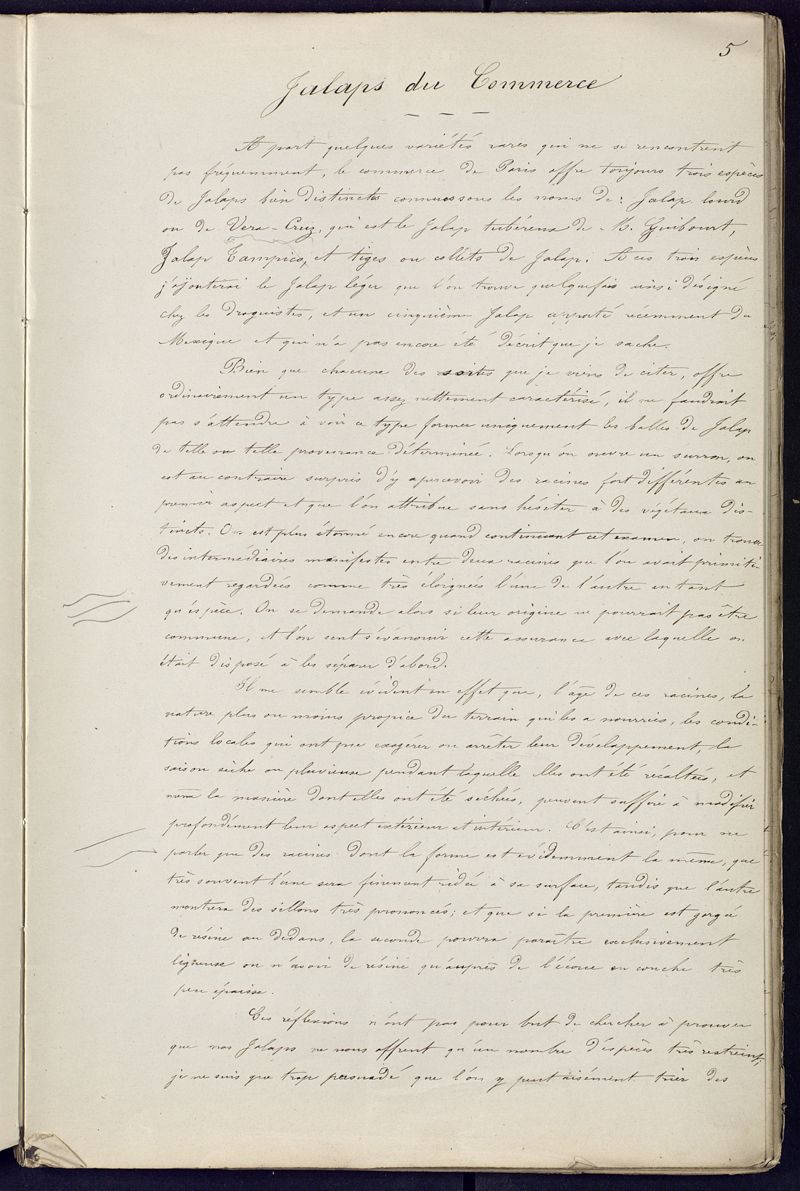 5
Jalaps du Commerce
A part quelques variétés rares qui ne se rencontrent
pas fréquemment, le commerce de Paris offre toujours trois espèces
de Jalaps bien distinctes connues sous les noms de: Jalap lourd
ou de Vera-Cruz, qui est le Jalap tubéreux de M. Guibourt,
Jalap Tampico, et tiges ou collets de Jalap; A ces trois espèces
j'ajouterai le Jalap léger que l'on trouve quelquefois ainsi désigné
chez les droguistes, et un cinquième Jalap apporté récemment du
Mexique et qui n'a pas encore été décrit que je sache.
Bien que chacune des sortes que je viens de citer, offre
ordinairement un type assez nettement caractérisé, il ne faudrait
pas s'attendre à voir ce type former uniquement les balles de Jalap
de telle ou telle provenance déterminée. Lorsqu'on ouvre un surron, on
est au contraire surpris d'y apercevoir des racines fort différentes au
premier aspect et que l'on attribue sans hésiter à des végétaux dis-
tincts. On est plus étonné encore quand continuant cet examen, on trouve
des intermédiaires manifestes entre deux racines que l'on avait primiti-
vement regardées comme très éloignées l'une de l'autre en tant
qu'espèce. On se demande alors si leur origine ne pourrait pas être
commune, et l'on sent s'évanouir cette assurance avec laquelle on
était disposé à les séparer d'abord.
Il me semble évident en effet que, l'âge de ces racines, la
nature plus ou moins propice du terrain qui les a nourries, les condi-
tions locales qui ont pu exagérer ou arrêter leur développement, la
saison sèche ou pluvieuse pendant laquelle elles ont été récoltées, et
même la manière dont elles ont été séchées, peuvent suffire à modifier
profondément leur aspect extérieur et intérieur. C'est ainsi, pour ne
parler que des racines dont la forme est évidemment la même, que
très souvent l'une sera finement ridée à sa surface, tandis que l'autre
montrera des sillons très prononcés; et que si la première est gorgée
de résine au dedans, la seconde pourra paraître exclusivement
ligneuse ou n'avoir de résine qu'auprès de l'écorce en couche très
peu épaisse.
Ces réflexions n'ont pas pour but de chercher à prouver
que nos Jalaps ne nous offrent qu'un nombre d'espèces très restreint;
je ne suis que trop persuadé que l'on y peut aisément trier des